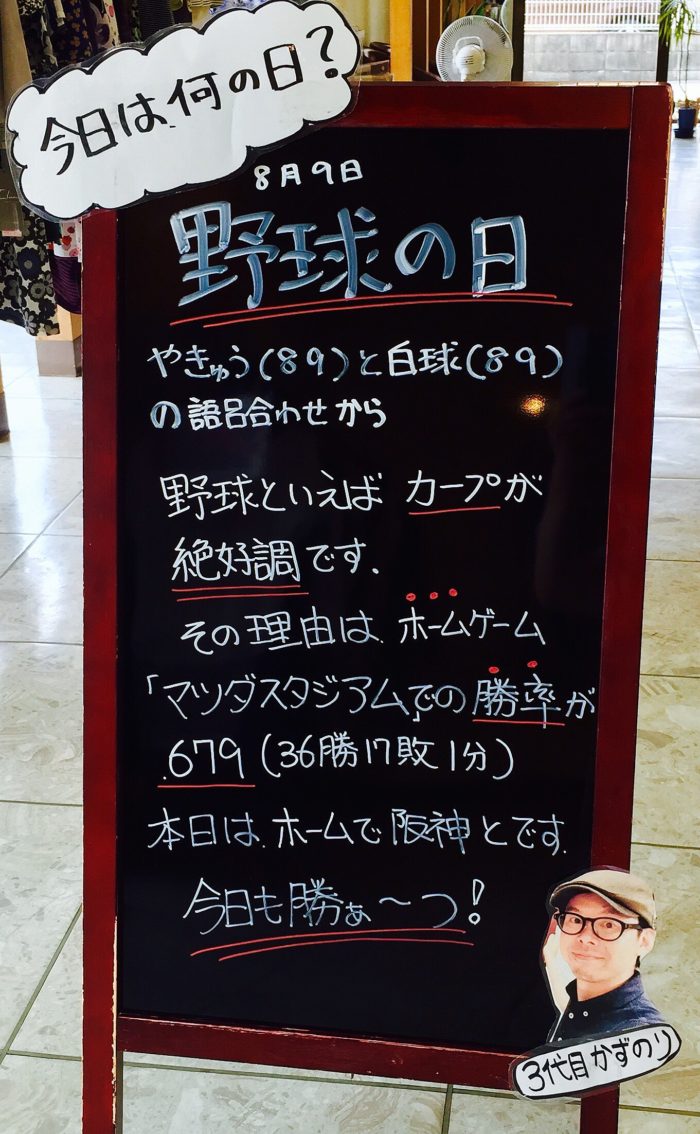 今日は何の日?
8月9日
野球の日
やきゅう(89)と白球(89)
の語呂合わせから
野球といえば カープが
絶好調です.
その理由は、ホームゲーム
「マツダスタジアム」での勝率が
.679(36勝17敗1分)
本日は、ホームで阪神とです.
今日も勝ぁ〜つ!
3代目かずのり